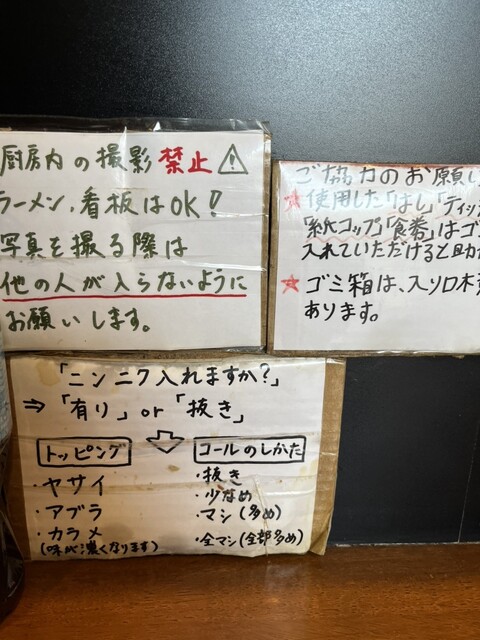 厨房内の撮影禁止⚠
ラーメン、看板はOK!
写真を撮る際は
他の人が入らないように
お願いします。
ご協力のお願い
★使用した「はし」「ティッシ
「紙コップ」「食券」はゴ
入れていただけると助か
★ゴミ箱は、入り口木
あります。
「ニンニク入れますか?」
⇒「有り」or「抜き」
トッピング
・ヤサイ
・アブラ
・カラメ
(味が濃くなります)
コールのしかた
・抜き
・少なめ
・マシ(多め)
・全マシ(全部多め)